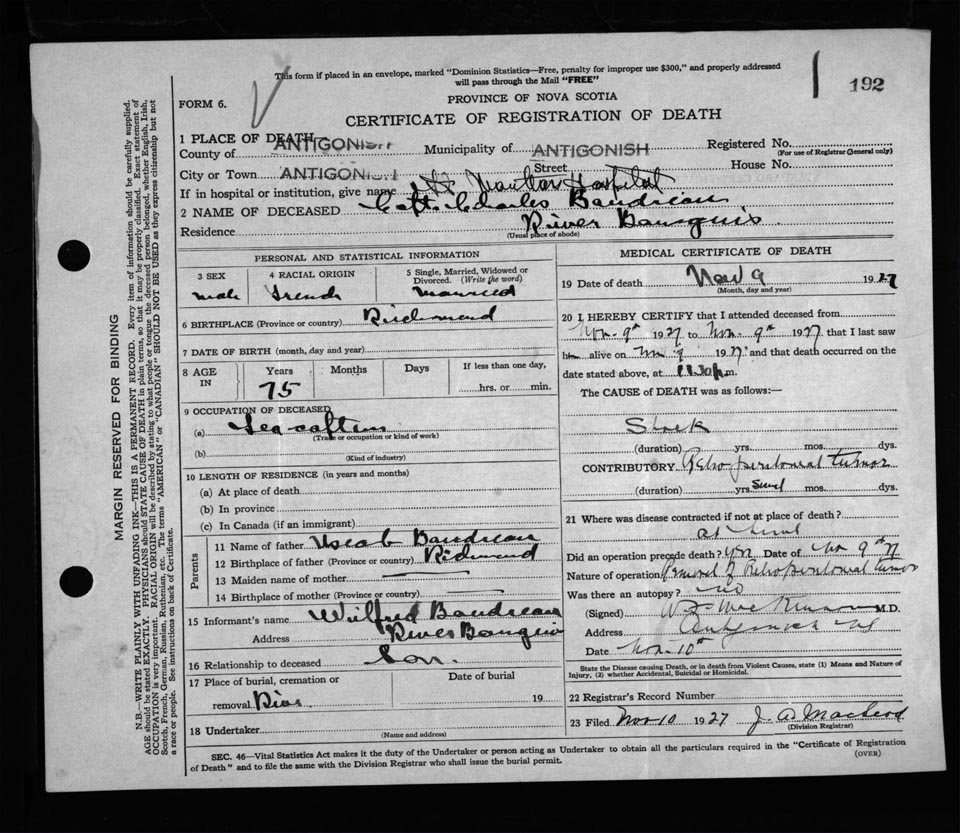 This form if placed in an envelope, marked "Dominion Statistics—Free, penalty for improper use $300," and properly addressed
will pass through the Mail "FREE"
192
FORM 6.
PROVINCE OF NOVA SCOTIA
CERTIFICATE OF REGISTRATION OF DEATH
MARGIN RESERVED FOR BINDING
N.B.—WRITE PLAINLY WITH UNFADING INK—THIS IS A PERMANENT RECORD. Every item of information should be carefully supplied.
AGE should be stated EXACTLY. PHYSICIANS should STATE CAUSE OF DEATH in plain terms, so that it may be properly classified. Exact statement of
OCCUPATION is very important. RACIAL ORIGIN will be described by stating to what people or tongue the deceased person belonged, whether English, Irish,
Scotch, French, German, Russian, Ruthenian, etc. The terms "AMERICAN" or "CANADIAN" SHOULD NOT BE USED as they express citizenship but not
a race or people. See instructions on back of Certificate.
1 PLACE OF DEATH—
County of ANTIGONISH Municipality of ANTIGONISH Registered No.
(For use of Registrar General only)
City or Town ANTIGONISH Street House No.
If in hospital or institution, give name St. Martha Hospital
2 NAME OF DECEASED Capt. Charles Boudreau
Residence River Bourgeois
(Usual place of abode)
PERSONAL AND STATISTICAL INFORMATION
3 SEX 4 RACIAL ORIGIN 5 Single, Married, Widowed or
Divorced. (Write the word)
male French Married
6 BIRTHPLACE (Province or country) Richmond
7 DATE OF BIRTH (month, day and year)
8 AGE IN Years Months Days If less than one day,
75 hrs. or min.
9 OCCUPATION OF DECEASED
(a) Sea captain
(Trade or occupation or kind of work)
(b)
(Kind of industry)
10 LENGTH OF RESIDENCE (in years and months)
(a) At place of death
(b) In province
(c) In Canada (if an immigrant)
Parents
11 Name of father Boudreau
12 Birthplace of father (Province or country) Richmond
13 Maiden name of mother
14 Birthplace of mother (Province or country)
15 Informant's name Wilfred Boudreau
Address River Bourgeois
16 Relationship to deceased Son.
17 Place of burial, cremation or Date of burial
removal River 19
18 Undertaker
(Name and address)
MEDICAL CERTIFICATE OF DEATH
19 Date of death Nov 9 1927
(Month, day and year)
20 I HEREBY CERTIFY that I attended deceased from
Nov. 9th 1927 to Nov. 9th 1927 that I last saw
him alive on Nov 9 1927 and that death occurred on the
date stated above, at m.
The CAUSE of DEATH was as follows:—
Shock
(duration) yrs. mos. dys.
CONTRIBUTORY Retro peritoneal tumor
(duration) yrs. mos. dys.
21 Where was disease contracted if not at place of death?
Did an operation precede death? Yes Date of Nov 9th 27
Nature of operation Removal of Retroperitoneal tumor
Was there an autopsy? no
(Signed) M.D.
Address Antigonish NS
Date Nov. 10th
State the Disease causing Death, or in death from Violent Causes, state (1) Means and Nature of
Injury, (2) whether Accidental, Suicidal or Homicidal.
22 Registrar's Record Number
23 Filed Nov 10 1927 J. A. MacLeod
(Division Registrar)
SEC. 46—Vital Statistics Act makes it the duty of the Undertaker or person acting as Undertaker to obtain all the particulars required in the "Certificate of Registration
of Death" and to file the same with the Division Registrar who shall issue the burial permit. (OVER)